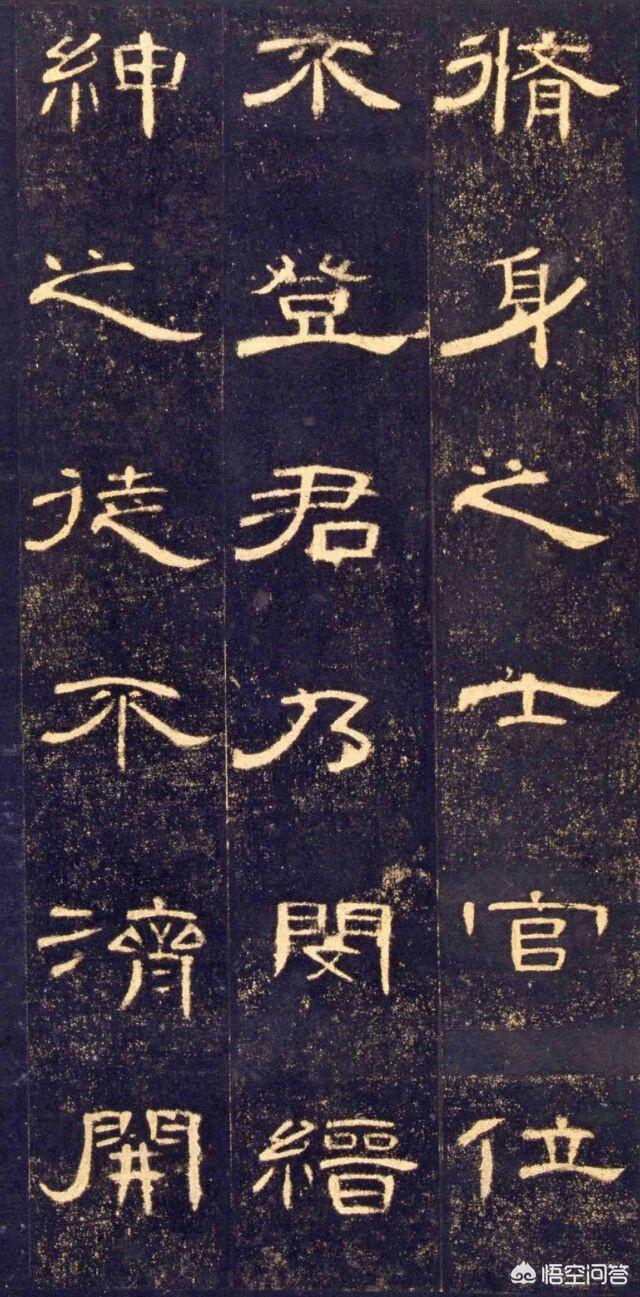 脩身之士官位
不登君乃閔縉
紳之徒不濟開
悟空问答